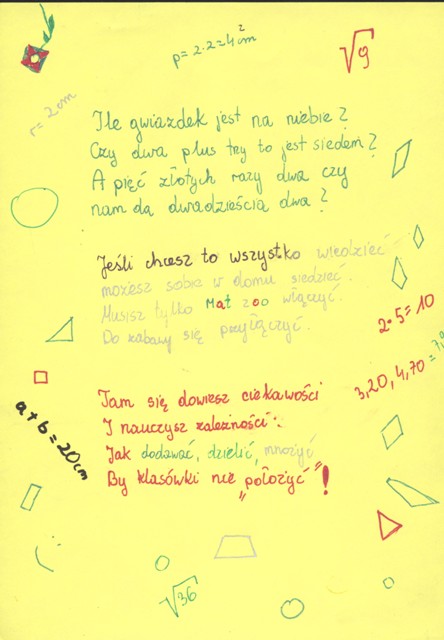 p = 2·2=4cm²
√9
r = 2cm
Ile gwiazdek jest na niebie?
Czy dwa plus trzy to jest siedem?
A pięć złotych razy dwa czy
nam da dwadzieścia dwa?
Jeśli chcesz to wszystko wiedzieć
możesz sobie w domu siedzieć.
Musisz tylko Mat zoo włączyć.
Do zabawy się przyłączyć.
2·5=10
3,20, 4,70 = 7,9
a + b = 20cm
Tam się dowiesz ciekawości
I nauczysz zależności:
Jak dodawać, dzielić, mnożyć
By klasówki nie „położyć"!
√36